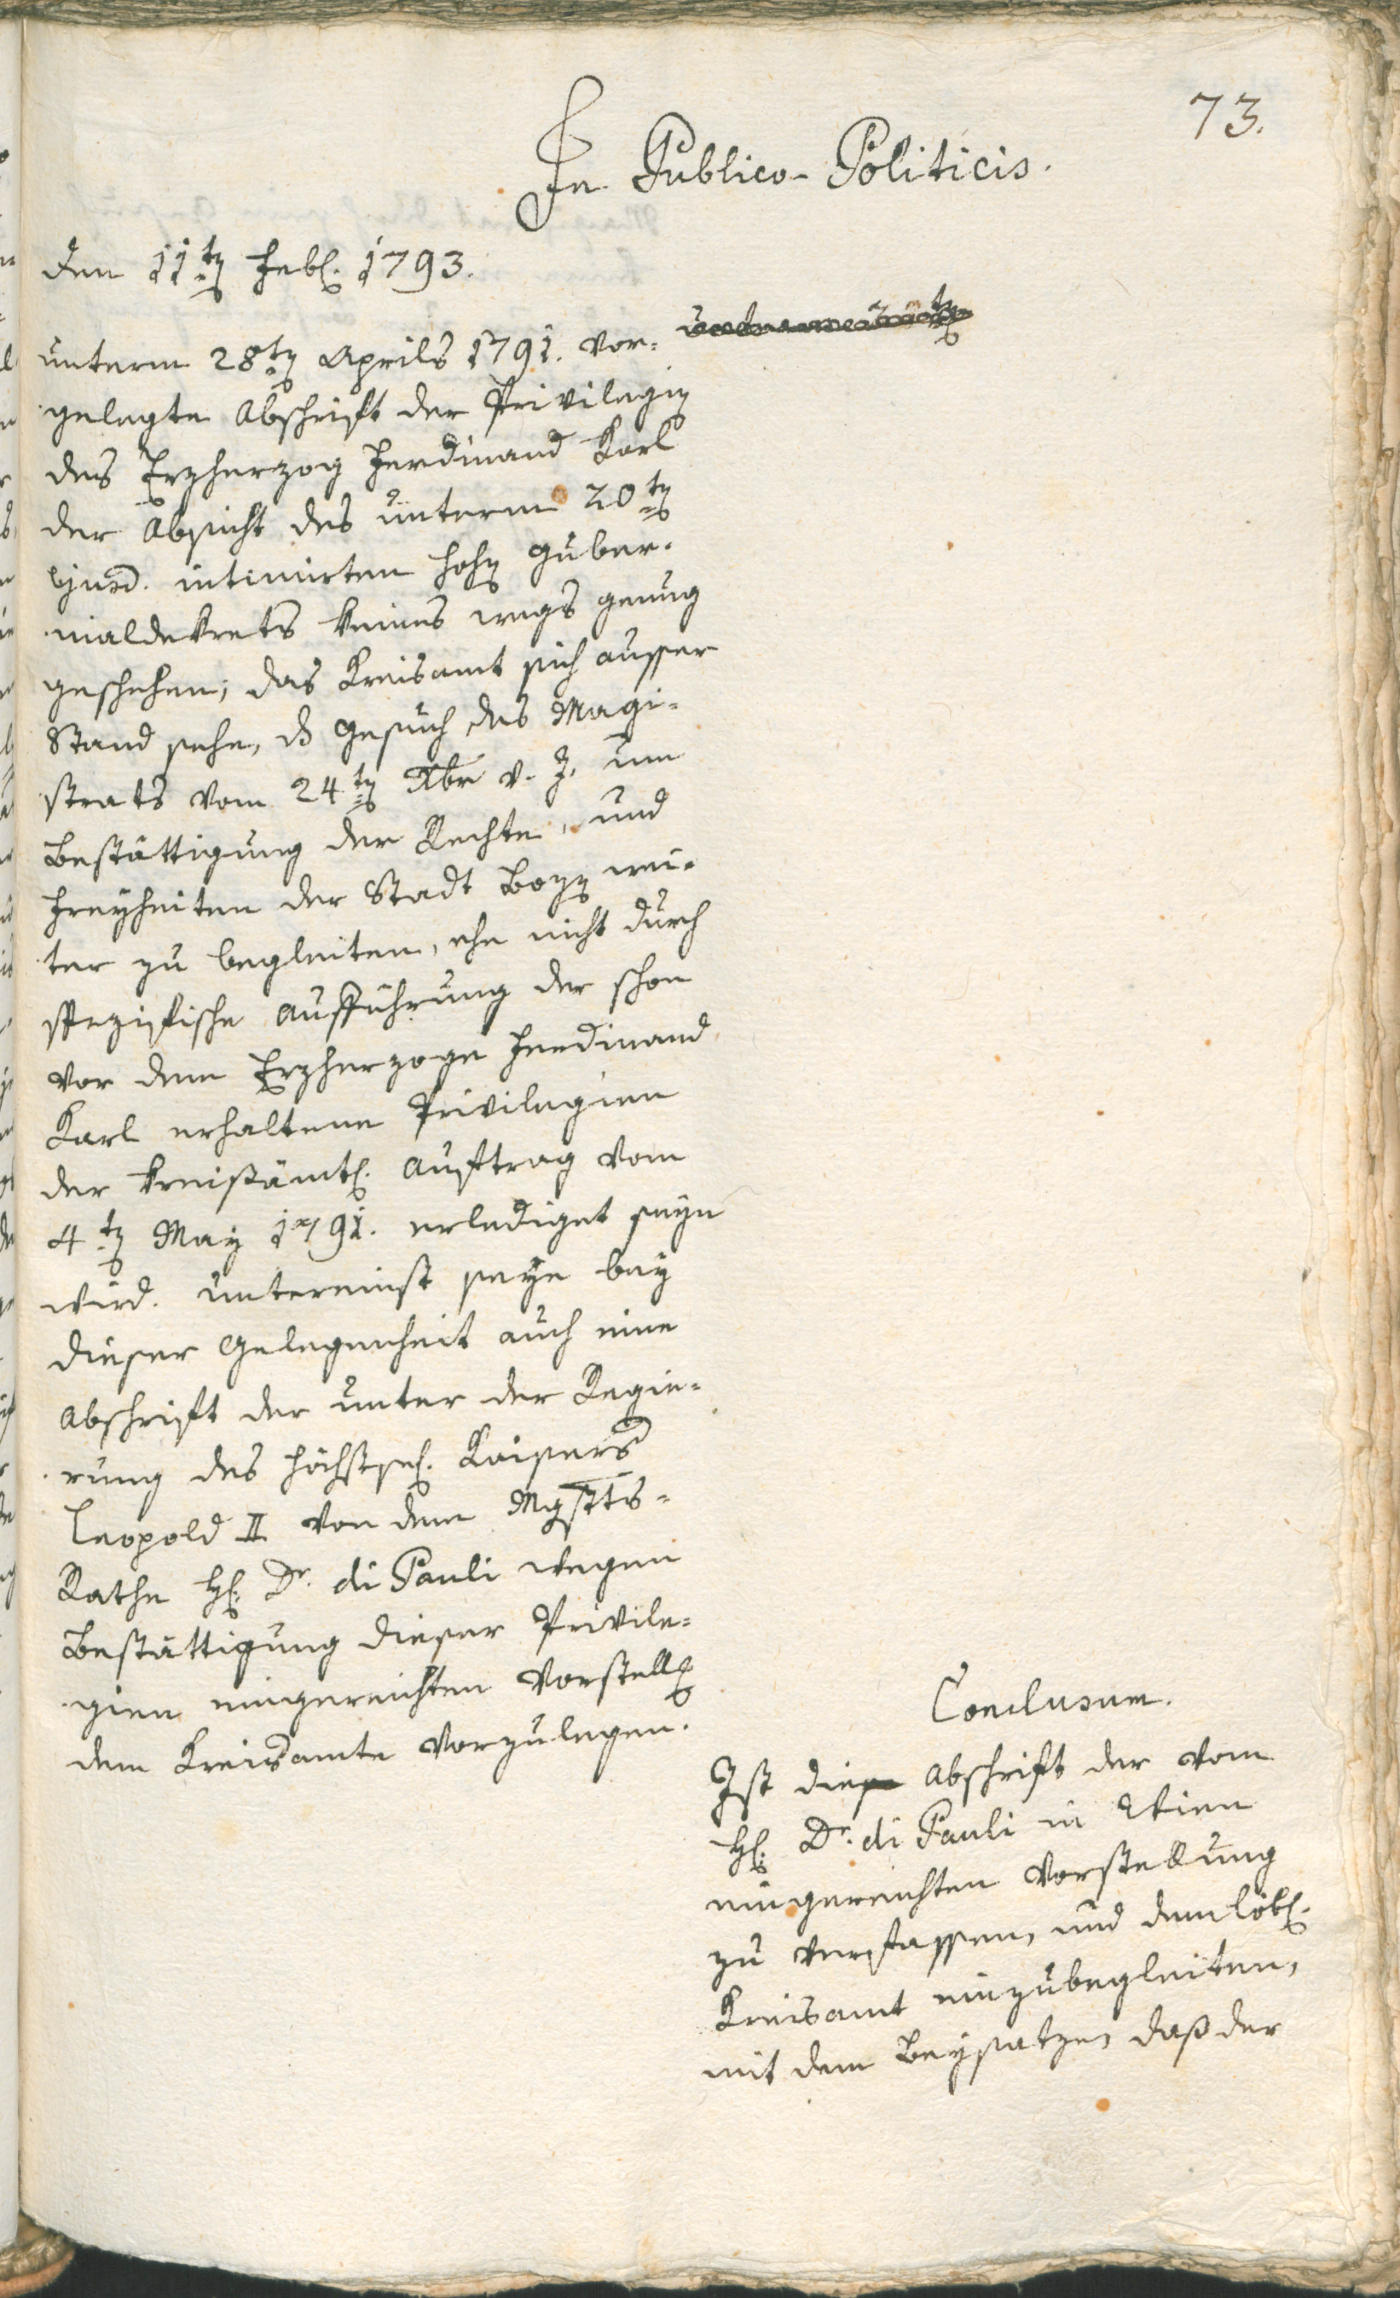 73.
In Publico-Politicis.
den 11ten Febl. 1793.
unterm 28ten Aprils 1791. vor=
gelegte Abschrift der Privilegien
des Erzherzog Ferdinand Karl
der Absicht des unterm 20ten
ejusd. intimirten hohen Guber=
nialdekrets keines wegs genug
geschehen; das Kreisamt sich ausser
Stand sehe, ds Gesuch des Magi=
strats vom 24ten Xbr v. J. um
Bestättigung der Rechte, und
Freyheiten der Stadt Bozen wei=
ter zu begleiten, ehe nicht durch
spezifische Aufführung der schon
vor dem Erzherzoge Ferdinand
Karl erhaltene Privilegien
der kreisämtl. Auftrag vom
4ten May 1791. erlediget seyn
wird. Untereinst seye bey
dieser Gelegenheit auch eine
Abschrift der unter der Regie=
rung des höchstsel. Kaisers
Leopold II von dem Mgstts=
Rathe H. Dr. di Pauli wegen
Bestättigung dieser Privile=
gien eingereichten Vorstellg
dem Kreisamte vorzulegen.
Conclusum.
Ist die Abschrift der vom
H. Dr. di Pauli in Wien
eingereichten Vorstellung
zu verfassen, und dem löbl.
Kreisamt einzubegleiten,
mit dem Beysatze, daß der